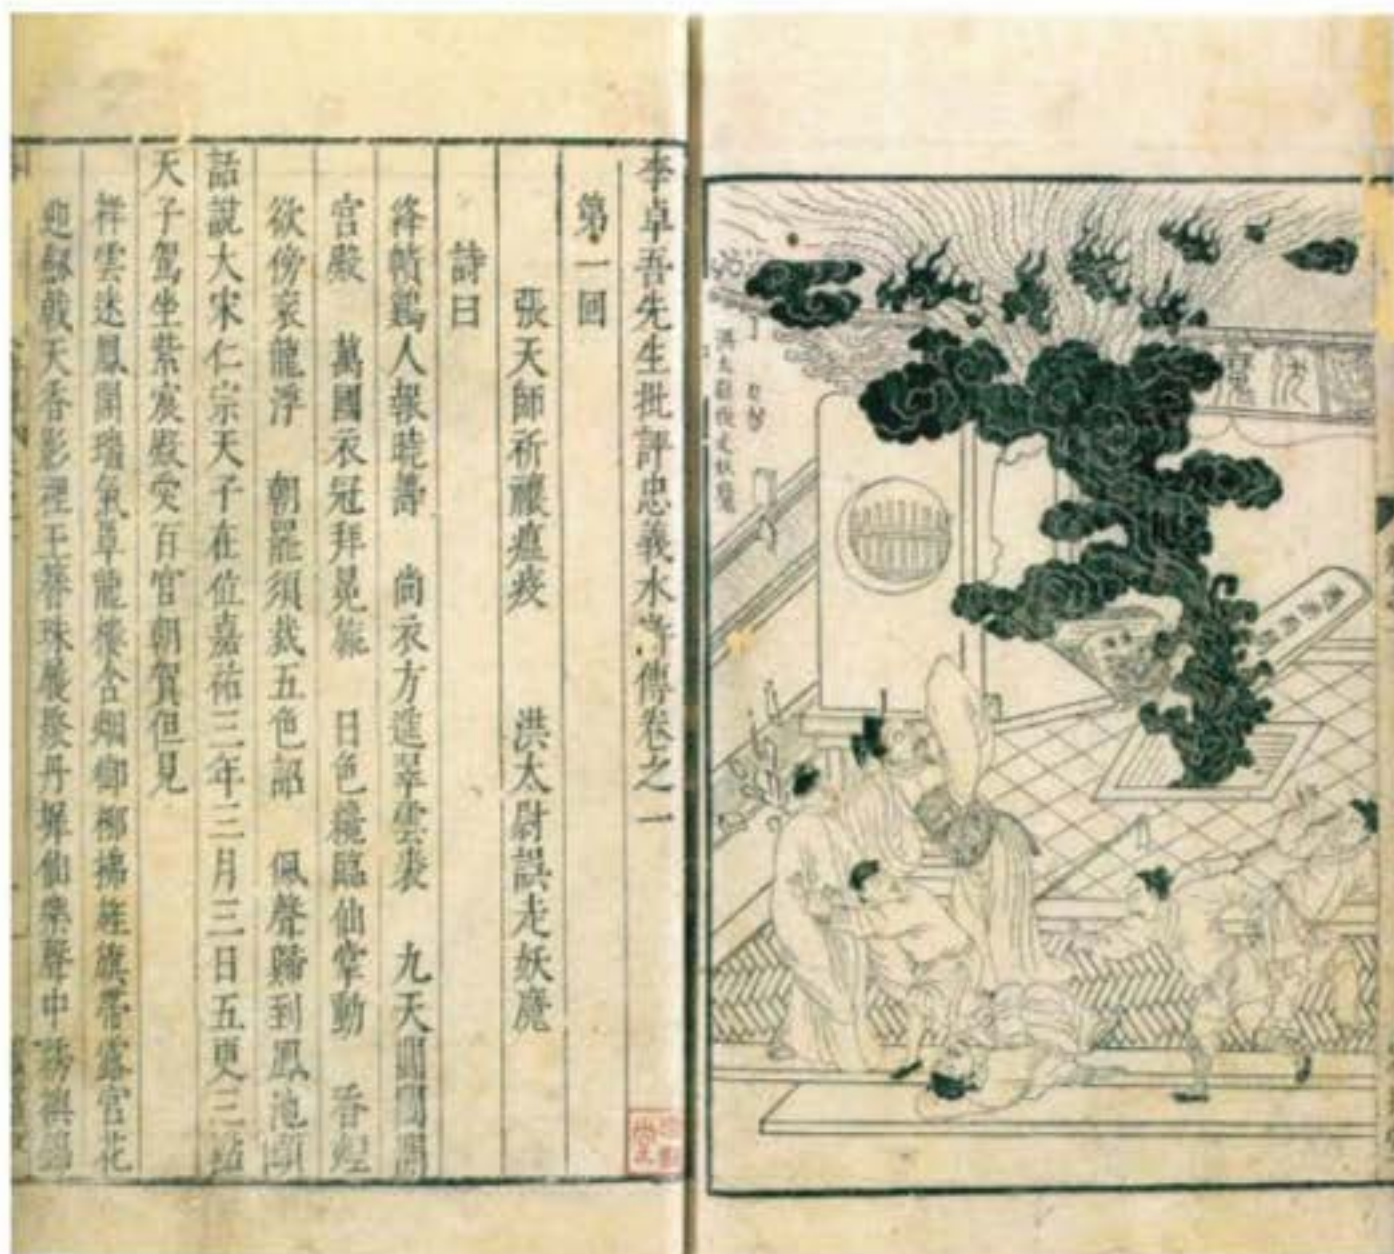 伏魔
洪太尉悞走妖魔
李卓吾先生批評忠義水滸傳卷之一
第一回
張天師祈禳瘟疫　洪太尉誤走妖魔
詩曰
絳幘鷄人報曉籌　尚衣方進翠雲裘　九天閶闔開
宮殿　萬國衣冠拜冕旒　日色纔臨仙掌動　香煙
欲傍袞龍浮　朝罷須裁五色詔　佩聲歸到鳳池頭
話說大宋仁宗天子在位嘉祐三年三月三日五更三點
天子駕坐紫宸殿受百官朝賀但見
祥雲迷鳳閣瑞氣罩龍樓含烟御柳拂旌旗帶露宮花
迎劔戟天香影裡玉簪珠履聚丹墀仙樂聲中綉襖錦